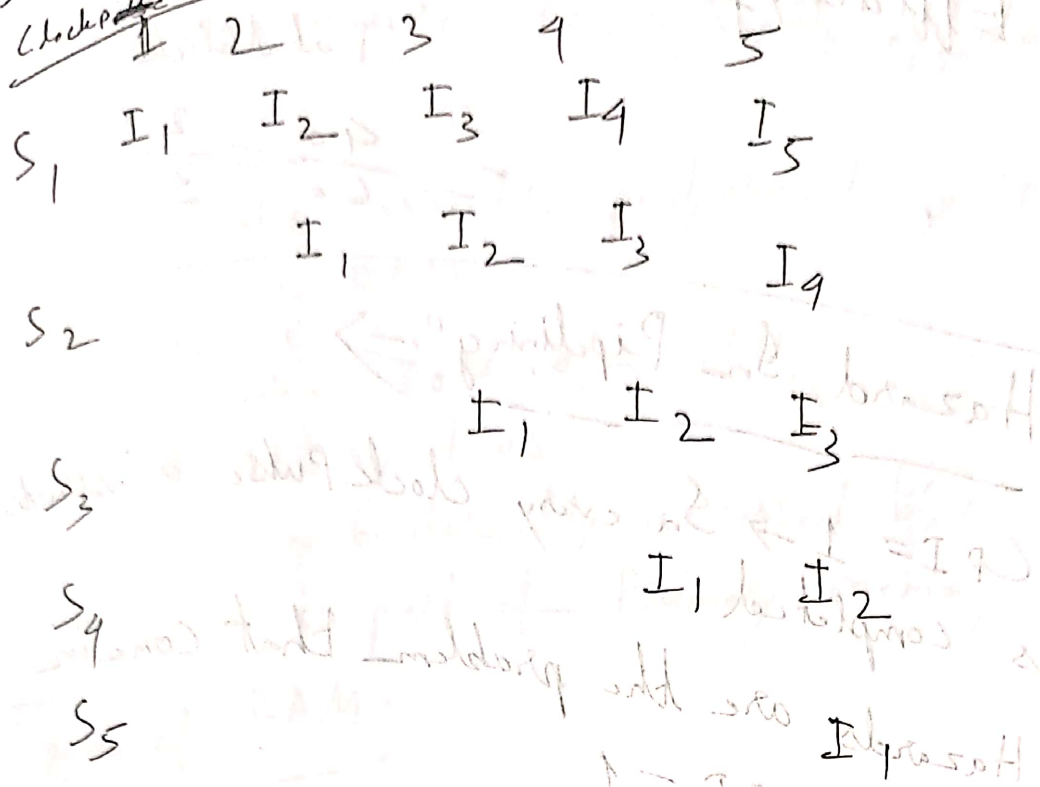 1 2 3 4 5
S1 I1 I2 I3 I4 I5
S2 I1 I2 I3 I4
S3 I1 I2 I3
S4 I1 I2
S5 I1